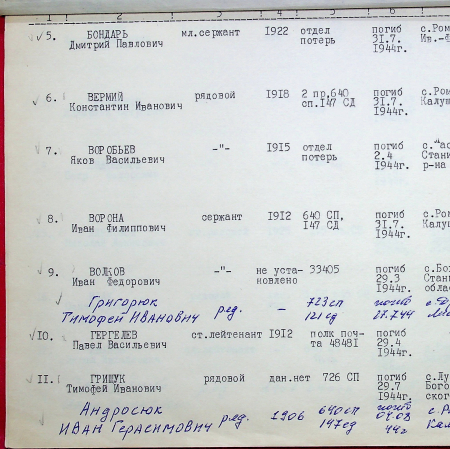 1 2 3 4 5 6
5. БОНДАРЬ мл.сержант 1922 отдел погиб с.Ром
Дмитрий Павлович потерь 31.7. Ив.-Ф
1944г.
6. ВЕРМИЙ рядовой 1918 2 пр,640 погиб с.Ром
Константин Иванович сп.147 СД 31.7. Калуш
1944г.
7. ВОРОБЬЕВ -"- 1915 отдел погиб
Яков Васильевич потерь 2.4 Стани
1944г. р-на
8. ВОРОНА сержант 1912 640 СП, погиб с.Ром
Иван Филиппович 147 СД 31.7. Калуш
1944г.
9. ВОЛКОВ -"- не уста- 33405 погиб с.Бол
Иван Федорович новлено 29.3 Стани
1944г. облас
Григорюк ряд. - 723 сп погиб
Тимофей Иванович 121 сд 27.7.44
10. ГЕРГЕЛЕВ ст.лейтенант 1912 полк поч- погиб
Павел Васильевич та 48481 29.4
1944г.
11. ГРИЩУК рядовой дан.нет 726 СП погиб с.Лу
Тимофей Иванович 29.7 Бого
1944г. ског
Андросюк ряд. 1906 640 сп погиб с.Р
Иван Герасимович 147 сд 04.08 Кал
44г